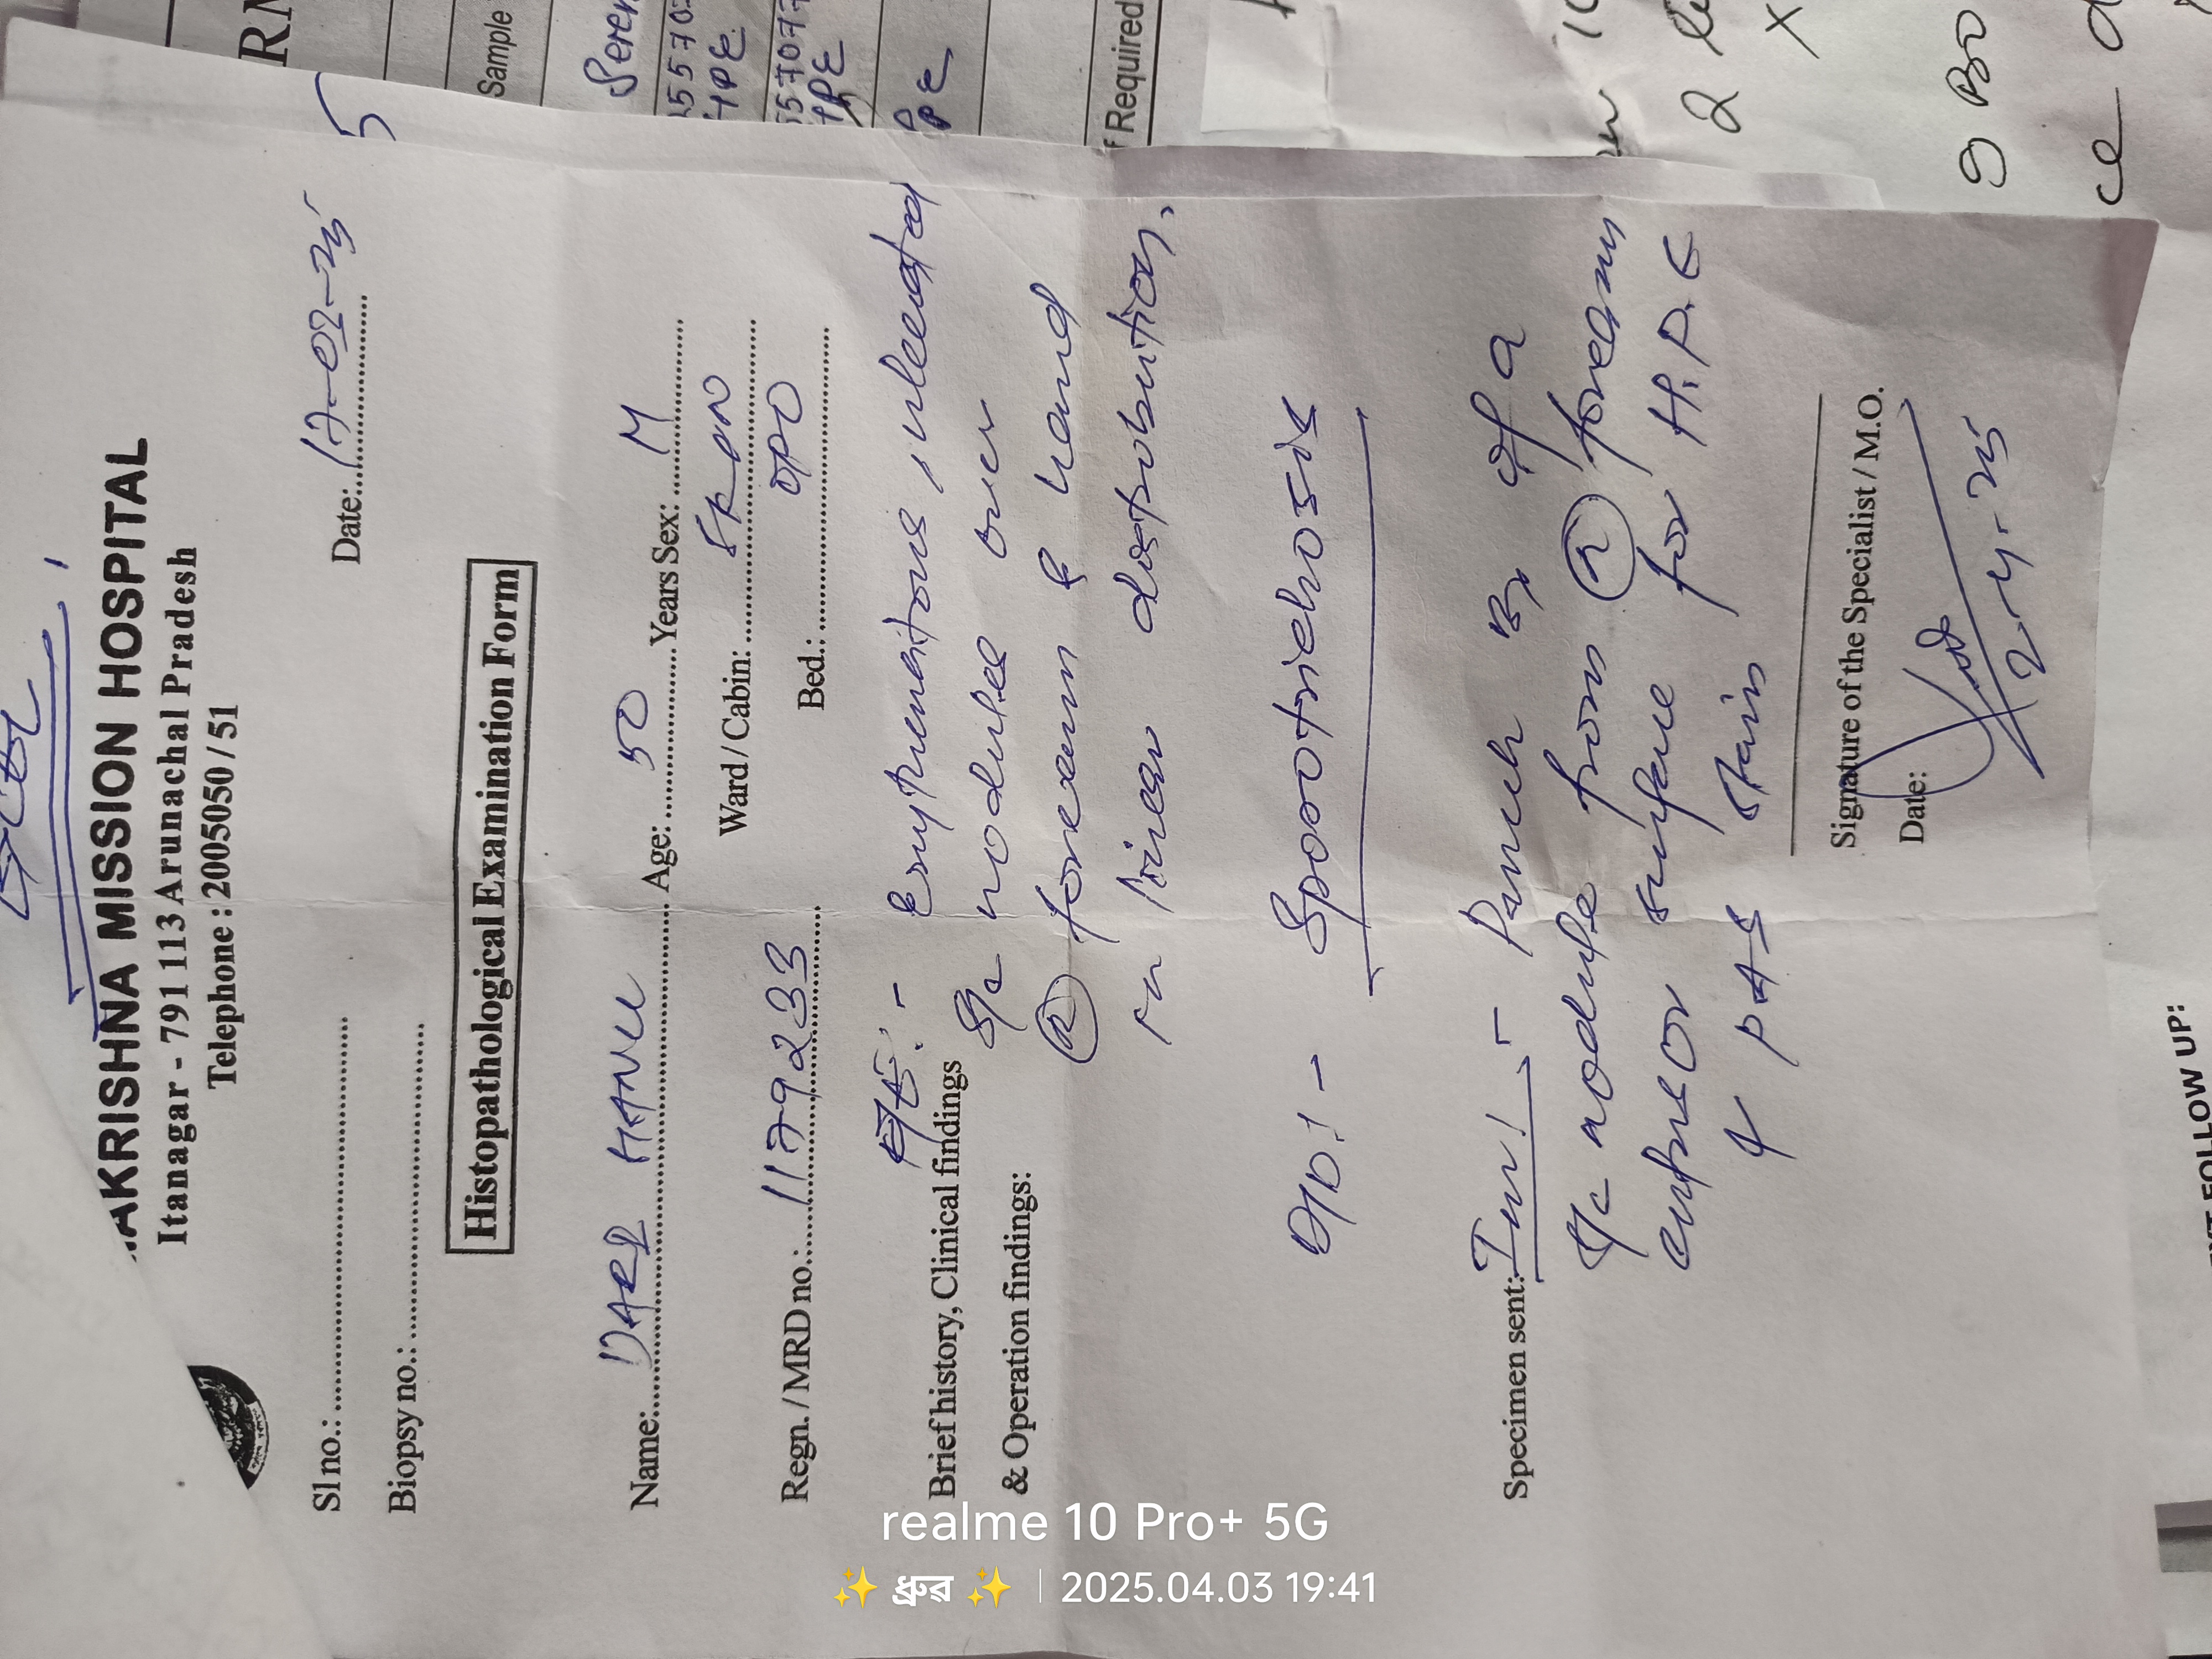 AKRISHNA MISSION HOSPITAL
Itanagar - 791 113 Arunachal Pradesh
Telephone : 2005050 / 51
Sl no.:
Date: 17-02-25
Biopsy no.:
Histopathological Examination Form
Name: HANU Age: 50 Years Sex: M
Ward / Cabin: SKIN
OPD
Regn. / MRD no.: 1179233 Bed.:
Brief history, Clinical findings
& Operation findings:
Erythematous, ulcerated
S/c nodules over
(R) forearm & hand
in linear distribution.
D/D! - Sporotrichosis
Specimen sent: - Punch Bx of a
S/c nodule from (R) forearm
surface for H.P.E
& PAS stain
Signature of the Specialist / M.O.
Date:
2-4-25
Sample
f Required
FOLLOW UP:
realme 10 Pro+ 5G
✨ ধ্রুব ✨ | 2025.04.03 19:41